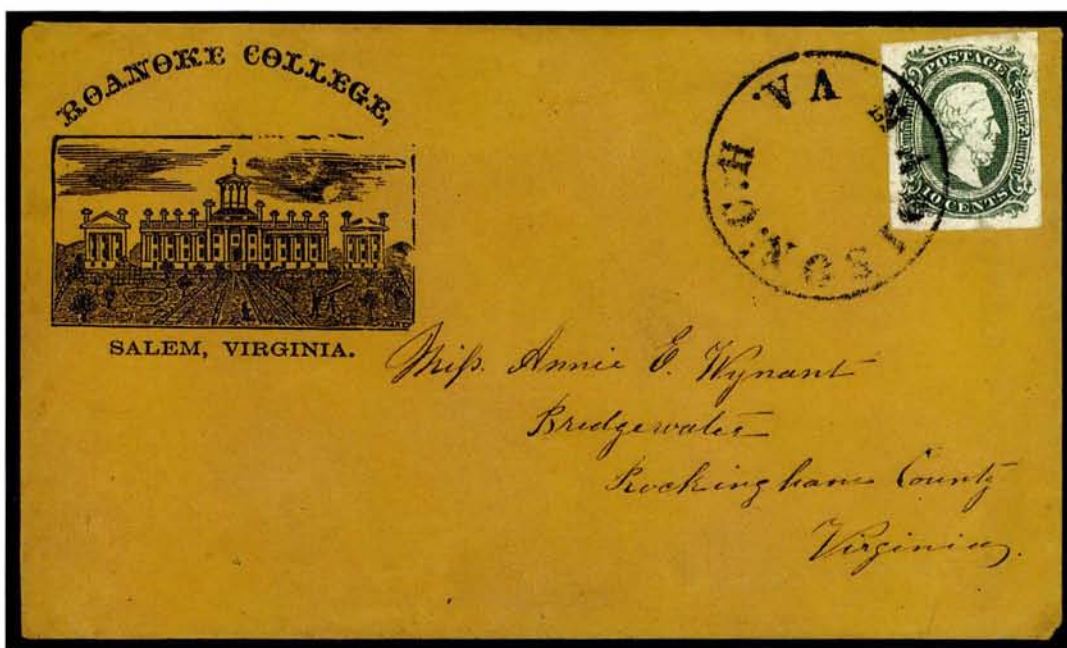 ROANOKE COLLEGE,
SALEM, VIRGINIA.
MADISON.C.H VA.
POSTAGE
10 CENTS
Miſs. Annie E. Wynant
Bridgewater
Rockingham County
Virginia.